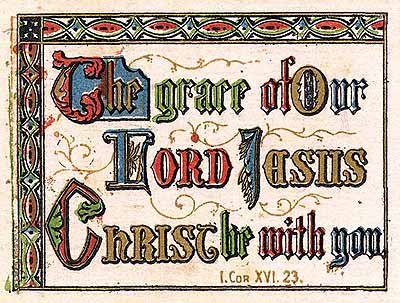 The grace of Our
Lord Jesus
Christ be with you.
I. Cor XVI. 23.